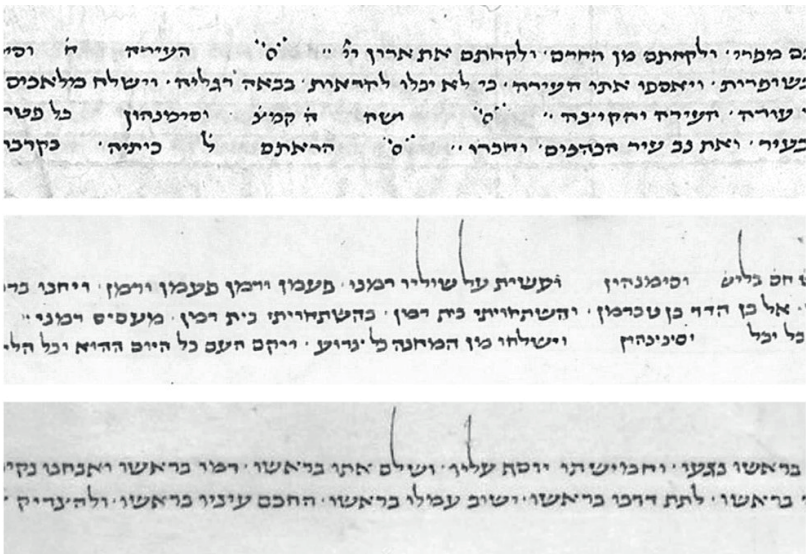 מפרי · ולקחתם מן החרם · ולקחתם את ארון יי ·· ס העירה ה וסי
בשופרות · ויאספו אתו העירה · כי לא יכלו להראות · כבאה רגליה · וישלח מלאכים
העירה ·· ס ושח ה קמיצ וסימנהון כל פטר
בעיר · ואת נב עיר הכהנים · וחברו ·· ס הראתם ל כיתיה · בקרבו
חס בליש וסימנהון ועשית על שוליו רמני · פעמון ורמן פעמון ורמן · ויחנו בר
אל בן הדד בן טברמן · והשתחויתי בית רמן · בהשתחויתי בית רמן · מעסיס רמני ··
כל יכל וסימנהון וישלחו מן המחנה כל צרוע · ויקם העם כל היום ההוא וכל הלי
בראשו בצעו · וחמוישתו יוסף עליו · ושילם אתו בראשו · דמו בראשו ואנחנו נקי
בראשו · לתת דרכו בראשו · ישוב עמלו בראשו · החכם עיניו בראשו · ולהצדיק